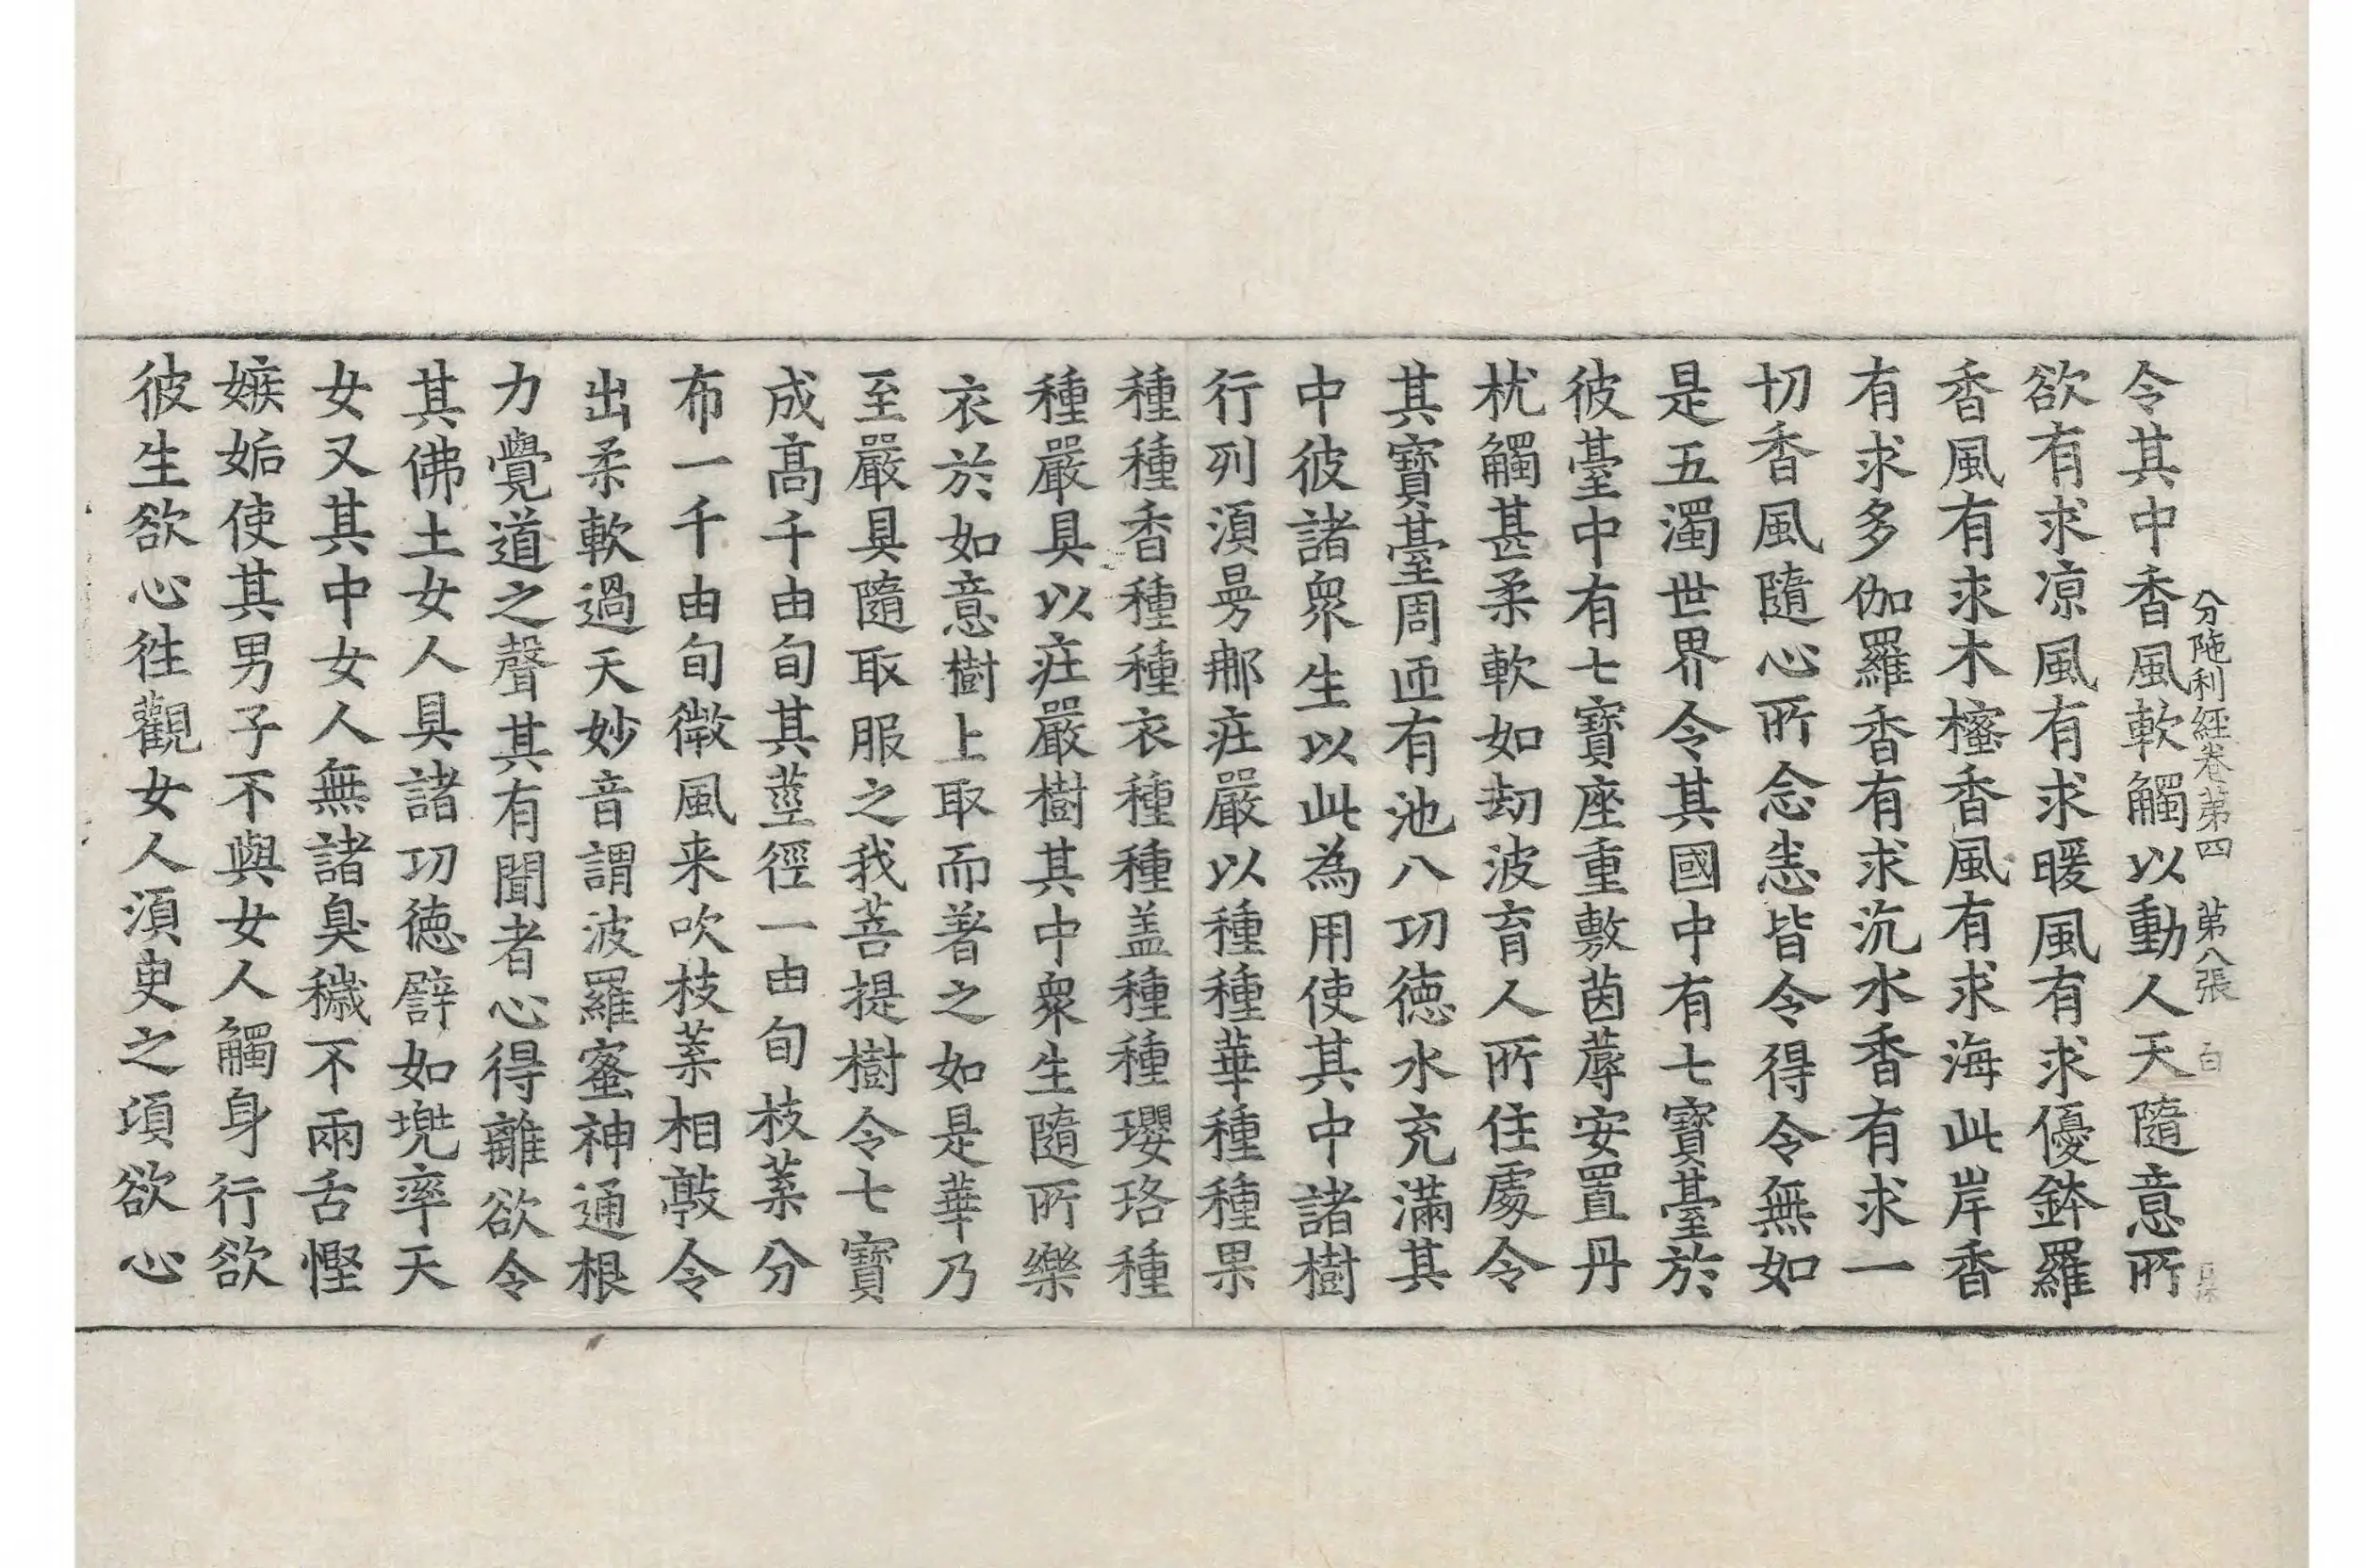 分陁利經卷苐四 苐八張 白
令其中香風軟觸以動人天隨意所
欲有求凉風有求暖風有求優鉢羅
香風有求木櫁香風有求海此岸香
有求多伽羅香有求沉水香有求一
切香風隨心所念恙皆令得令無如
是五濁世界令其國中有七寶臺於
彼臺中有七寶座重敷茵蓐安置丹
枕觸甚柔軟如劫波育人所住處令
其寶臺周匝有池八功德水充滿其
中彼諸衆生以此為用使其中諸樹
行列湏曼郍庄嚴以種種華種種果
種種香種種衣種種盖種種瓔珞種
種嚴具以庄嚴樹其中衆生隨所樂
衣於如意樹上取而著之如是華乃
至嚴具隨取服之我菩提樹令七寶
成髙千由旬其莖徑一由旬枝葉分
布一千由旬微風来吹枝葉相敲令
出柔軟過天妙音謂波羅蜜神通根
力覺道之聲其有聞者心得離欲令
其佛土女人具諸功德譬如兠率天
女又其中女人無諸臭穢不兩舌慳
嫉妬使其男子不與女人觸身行欲
彼生欲心徃觀女人湏臾之頃欲心